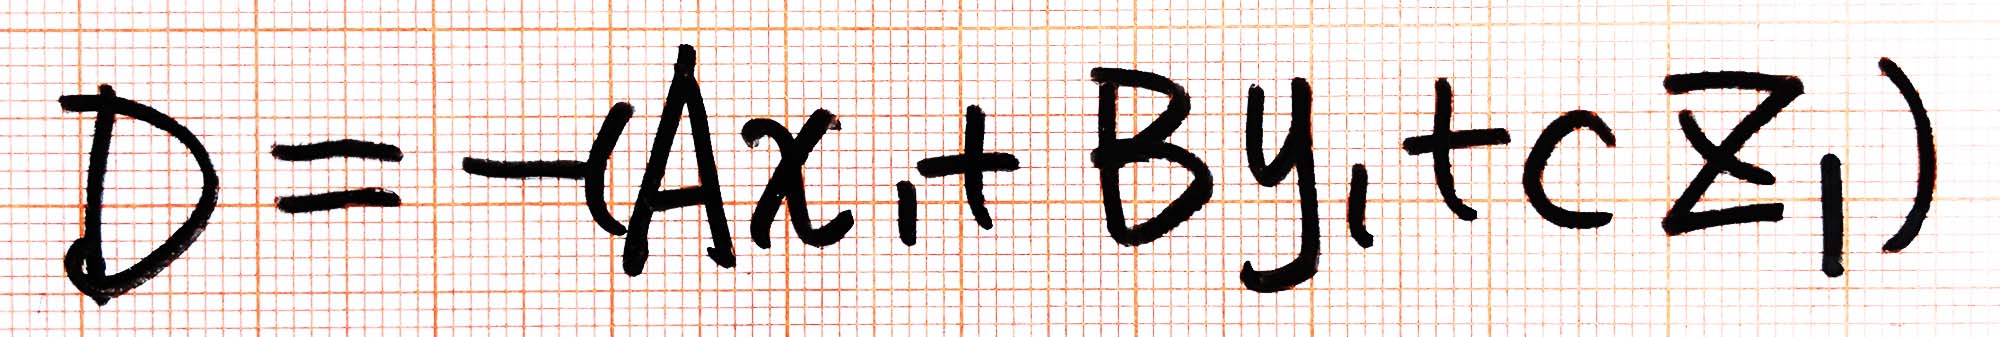 D = -(Ax₁ + By₁ + Cz₁)